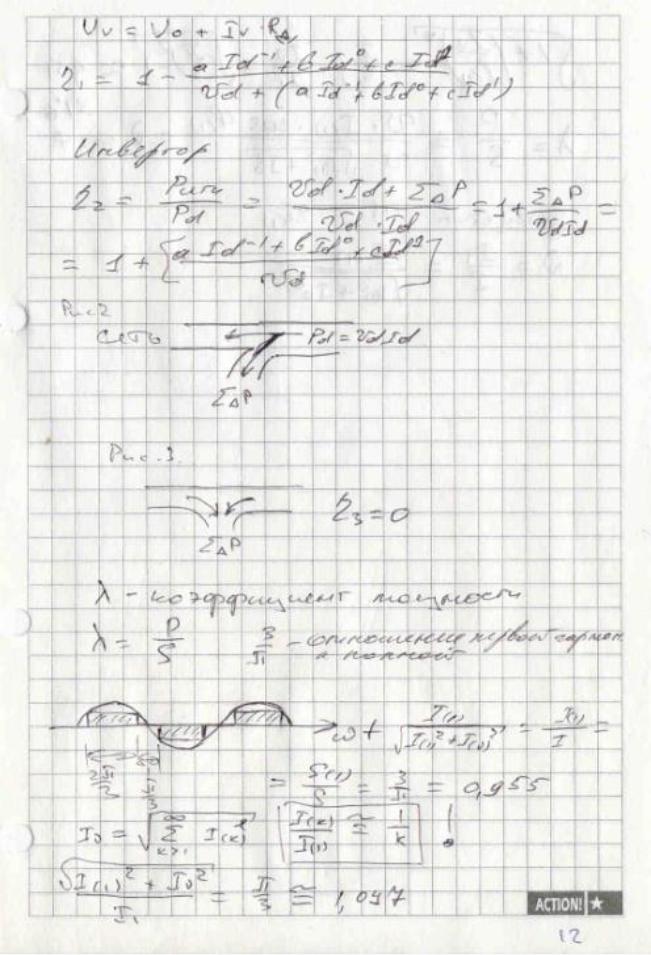 Uv = Vo + Iv · RΔ
η₁ = 1 - (a Id⁻¹ + в Id⁰ + c Id¹) / (Vd + (a Id⁻¹ + в Id⁰ + c Id¹))
Инвертор
η₂ = Pити / Pd = (Vd · Id + ΣΔP) / (Vd · Id) = 1 + ΣΔP / (Vd Id) =
= 1 + [(a Id⁻¹ + в Id⁰ + c Id¹) / Vd]
Рис 2
сеть Pd = Vd Id
ΣΔP
Рис. 3.
η₃ = 0
ΣΔP
λ - коэффициент мощности
λ = P / S 3/π - отношение первой гармон.
к полной
ωt I(1) / √(I(1)² + I(ν)²) = I(1) / I =
2π/3 π/3
= S(1) / S = 3/π = 0,955
Iν = √(Σ k>1 ∞ I(k)²) [I(k) / I(1) ≅ 1/k] !
√(I(1)² + Iν²) / I₁ = π/3 ≅ 1,047
ACTION! ★
12